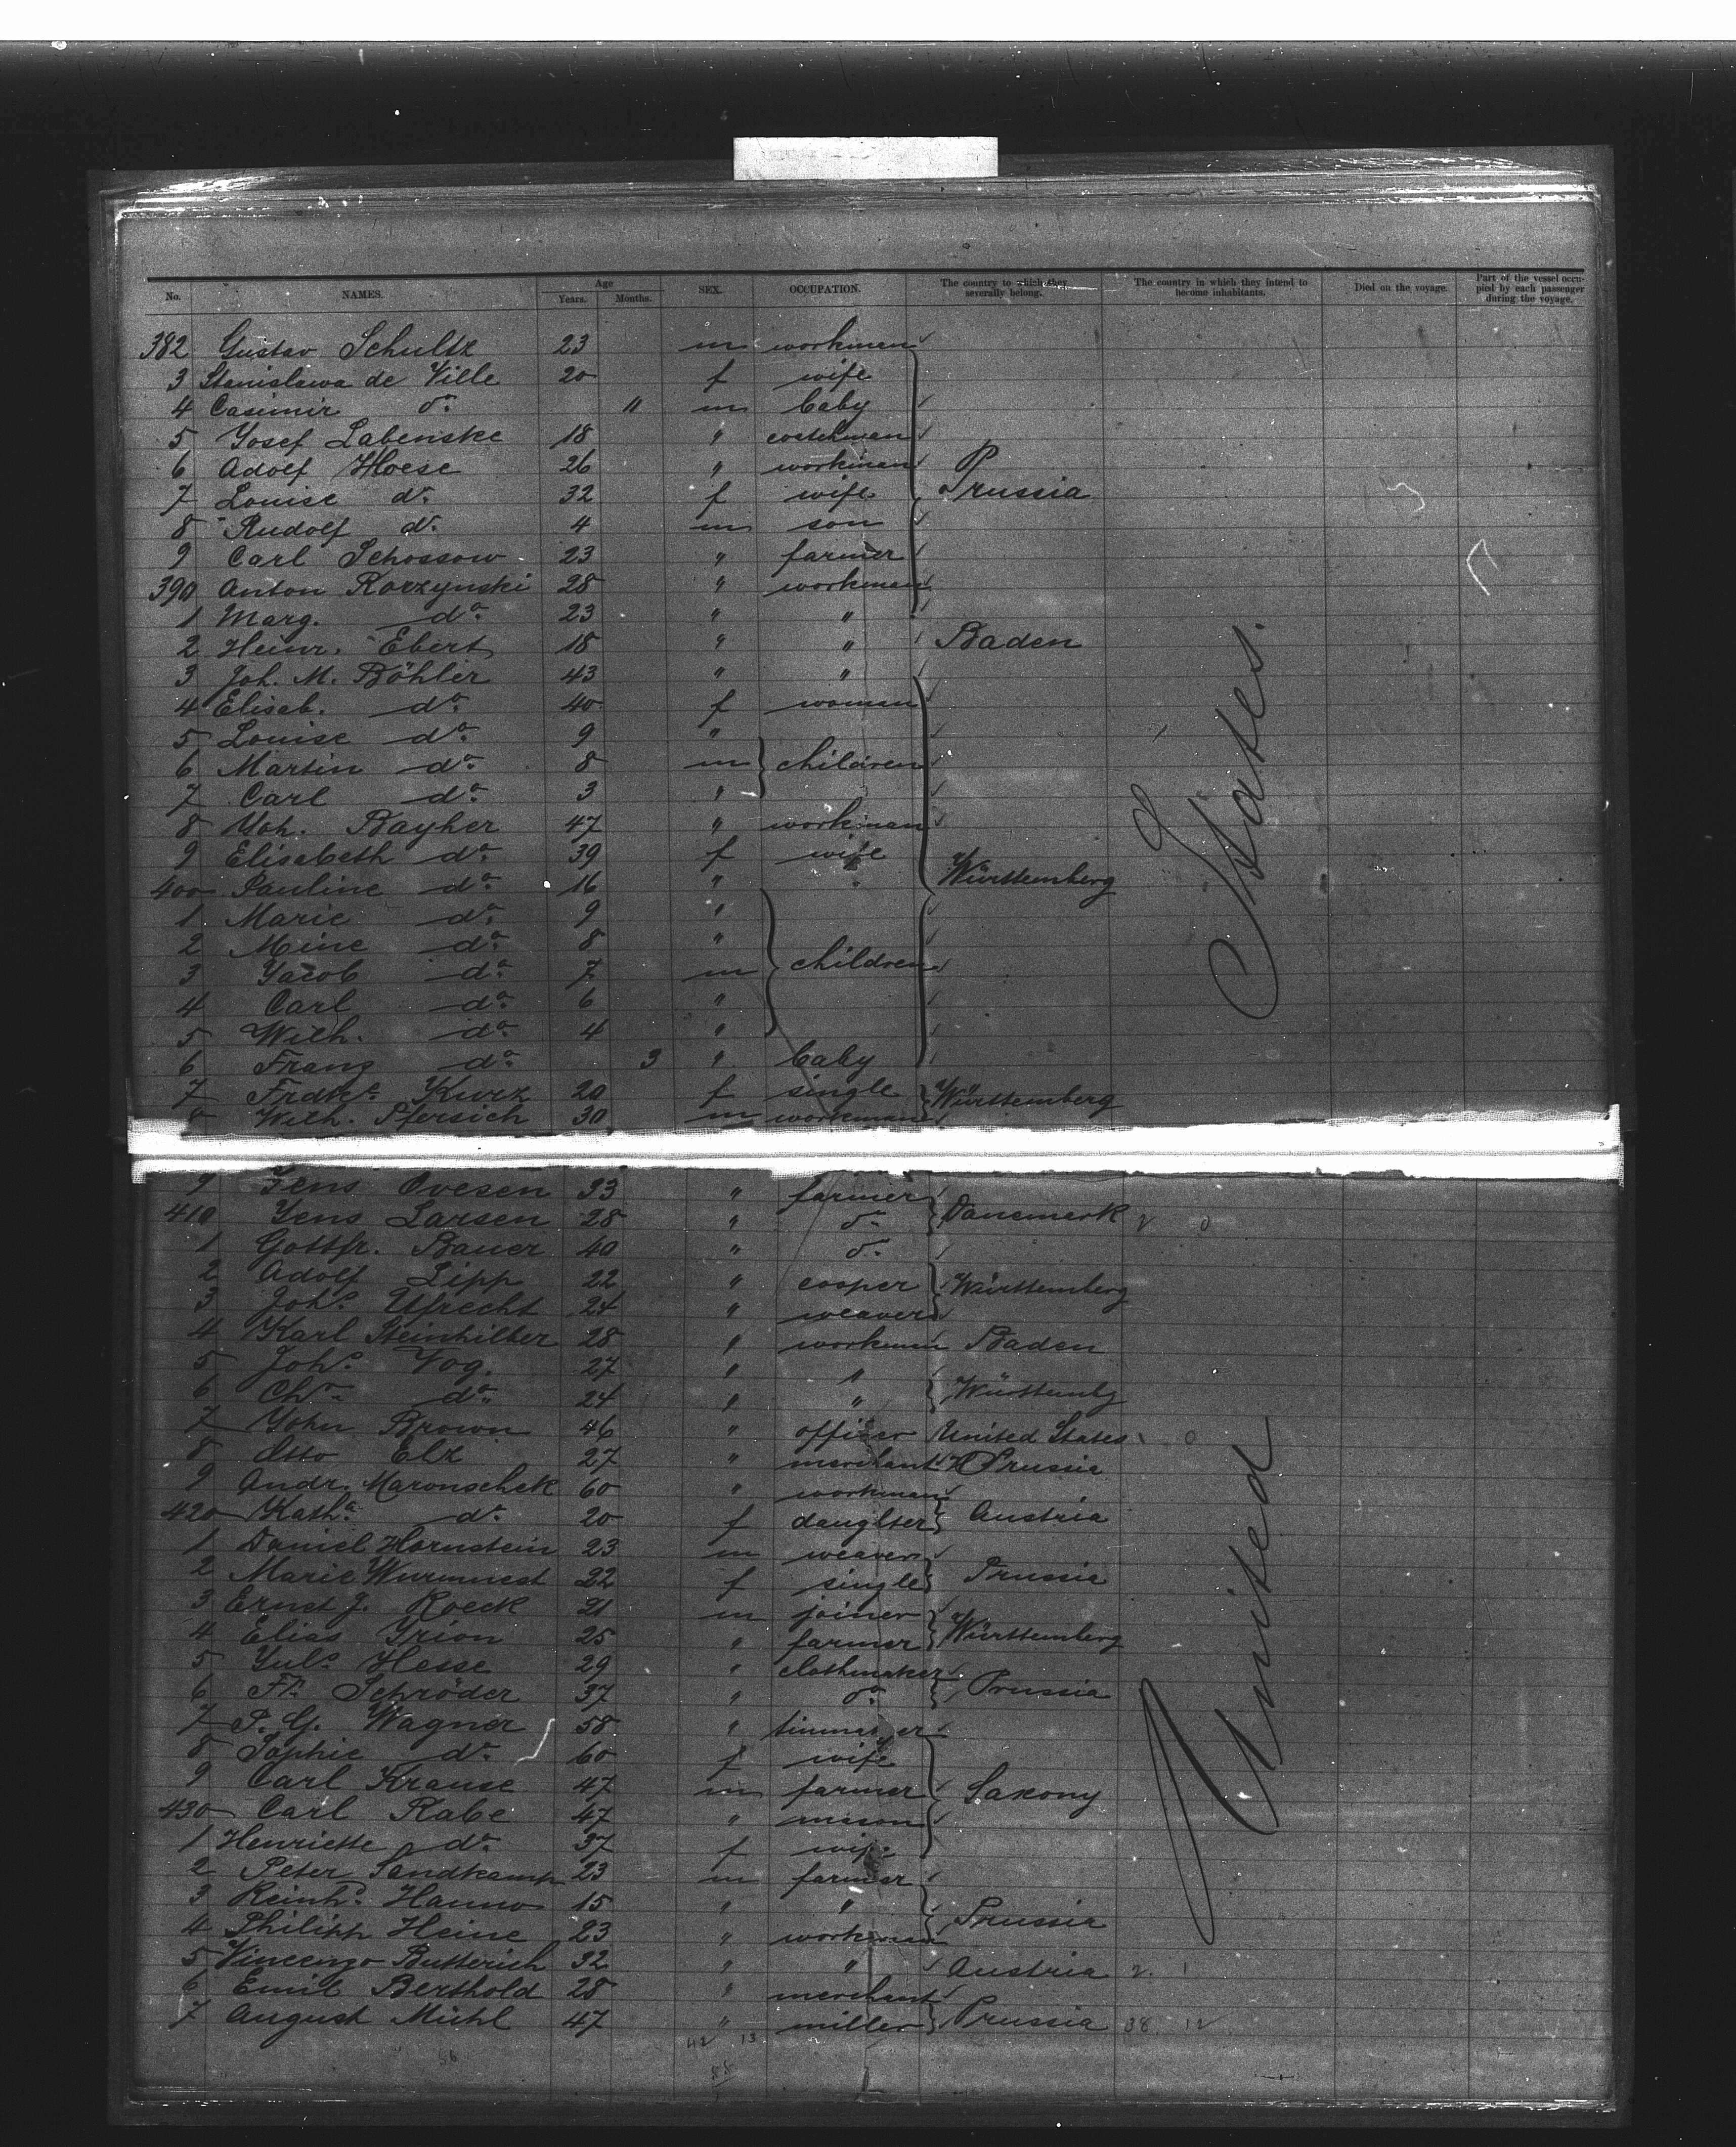 No. NAMES. Age Years. Months. SEX. OCCUPATION. The country to which they severally belong. The country in which they intend to become inhabitants. Died on the voyage. Part of the vessel occupied by each passenger during the voyage.
382 Gustav Schultz 23 m workman
3 Stanislawa de Ville 20 f wife
4 Casimir do. 11 m baby
5 Josef Labenske 18 " coachman
6 Adolf Hoese 26 " workman
7 Louise do. 32 f wife Prussia
8 Rudolf do. 4 m son
9 Carl Schossow 23 " farmer
390 Anton Rorzynski 28 " workman
1 Marg. do. 23 " "
2 Heinr. Ebert 18 " " Baden
3 Joh. M. Böhler 43 " "
4 Elisab. do. 40 f woman
5 Louise do. 9 "
6 Martin do. 8 m children
7 Carl do. 3 "
8 Joh. Bayher 47 " workman
9 Elisabeth do. 39 f wife
400 Pauline do. 16 " Württemberg
1 Marie do. 9 "
2 Mine do. 8 "
3 Jacob do. 7 m children
4 Carl do. 6 "
5 Wilh. do. 4 "
6 Franz do. 3 " baby
7 Fradke. Kurz 20 f single Württemberg
8 Wilh. Pfersich 30 m workman
9 Jens Ovesen 33 " farmer
410 Jens Larsen 28 " do. Danemark
1 Gottfr. Bauer 40 " do.
2 Adolf Lipp 22 " cooper Württemberg
3 Johs. Ufrecht 24 " weaver
4 Karl Steinhilber 28 " workman Baden
5 Johs. Vog. 27 " "
6 Chr. do. 24 " " Württembg
7 John Brown 46 " officer United States
8 Otto Elz 27 " merchant Prussia
9 Andr. Maronschek 60 " workman
420 Katha. do. 20 f daughter Austria
1 Daniel Hornstein 23 m weaver
2 Marie Wurmnest 22 f single Prussia
3 Ernst J. Roeck 21 m joiner
4 Elias Irion 25 " farmer Württemberg
5 Juls. Hesse 29 " clothmaker
6 Fr. Schröder 37 " do. Prussia
7 P. G. Wagner 58 "
8 Sophie do. 60 f wife
9 Carl Krause 47 m farmer Saxony
430 Carl Rabe 47 " mason
1 Henriette do. 37 f wife
2 Peter Sandkamp 23 m farmer
3 Reinhd. Hanno 15 " "
4 Philipp Heine 23 " workman Prussia
5 Vincenzo Butterich 32 " " Austria
6 Emil Berthold 28 " merchant
7 August Mühl 47 " miller Prussia 38 12
42 13
United States.